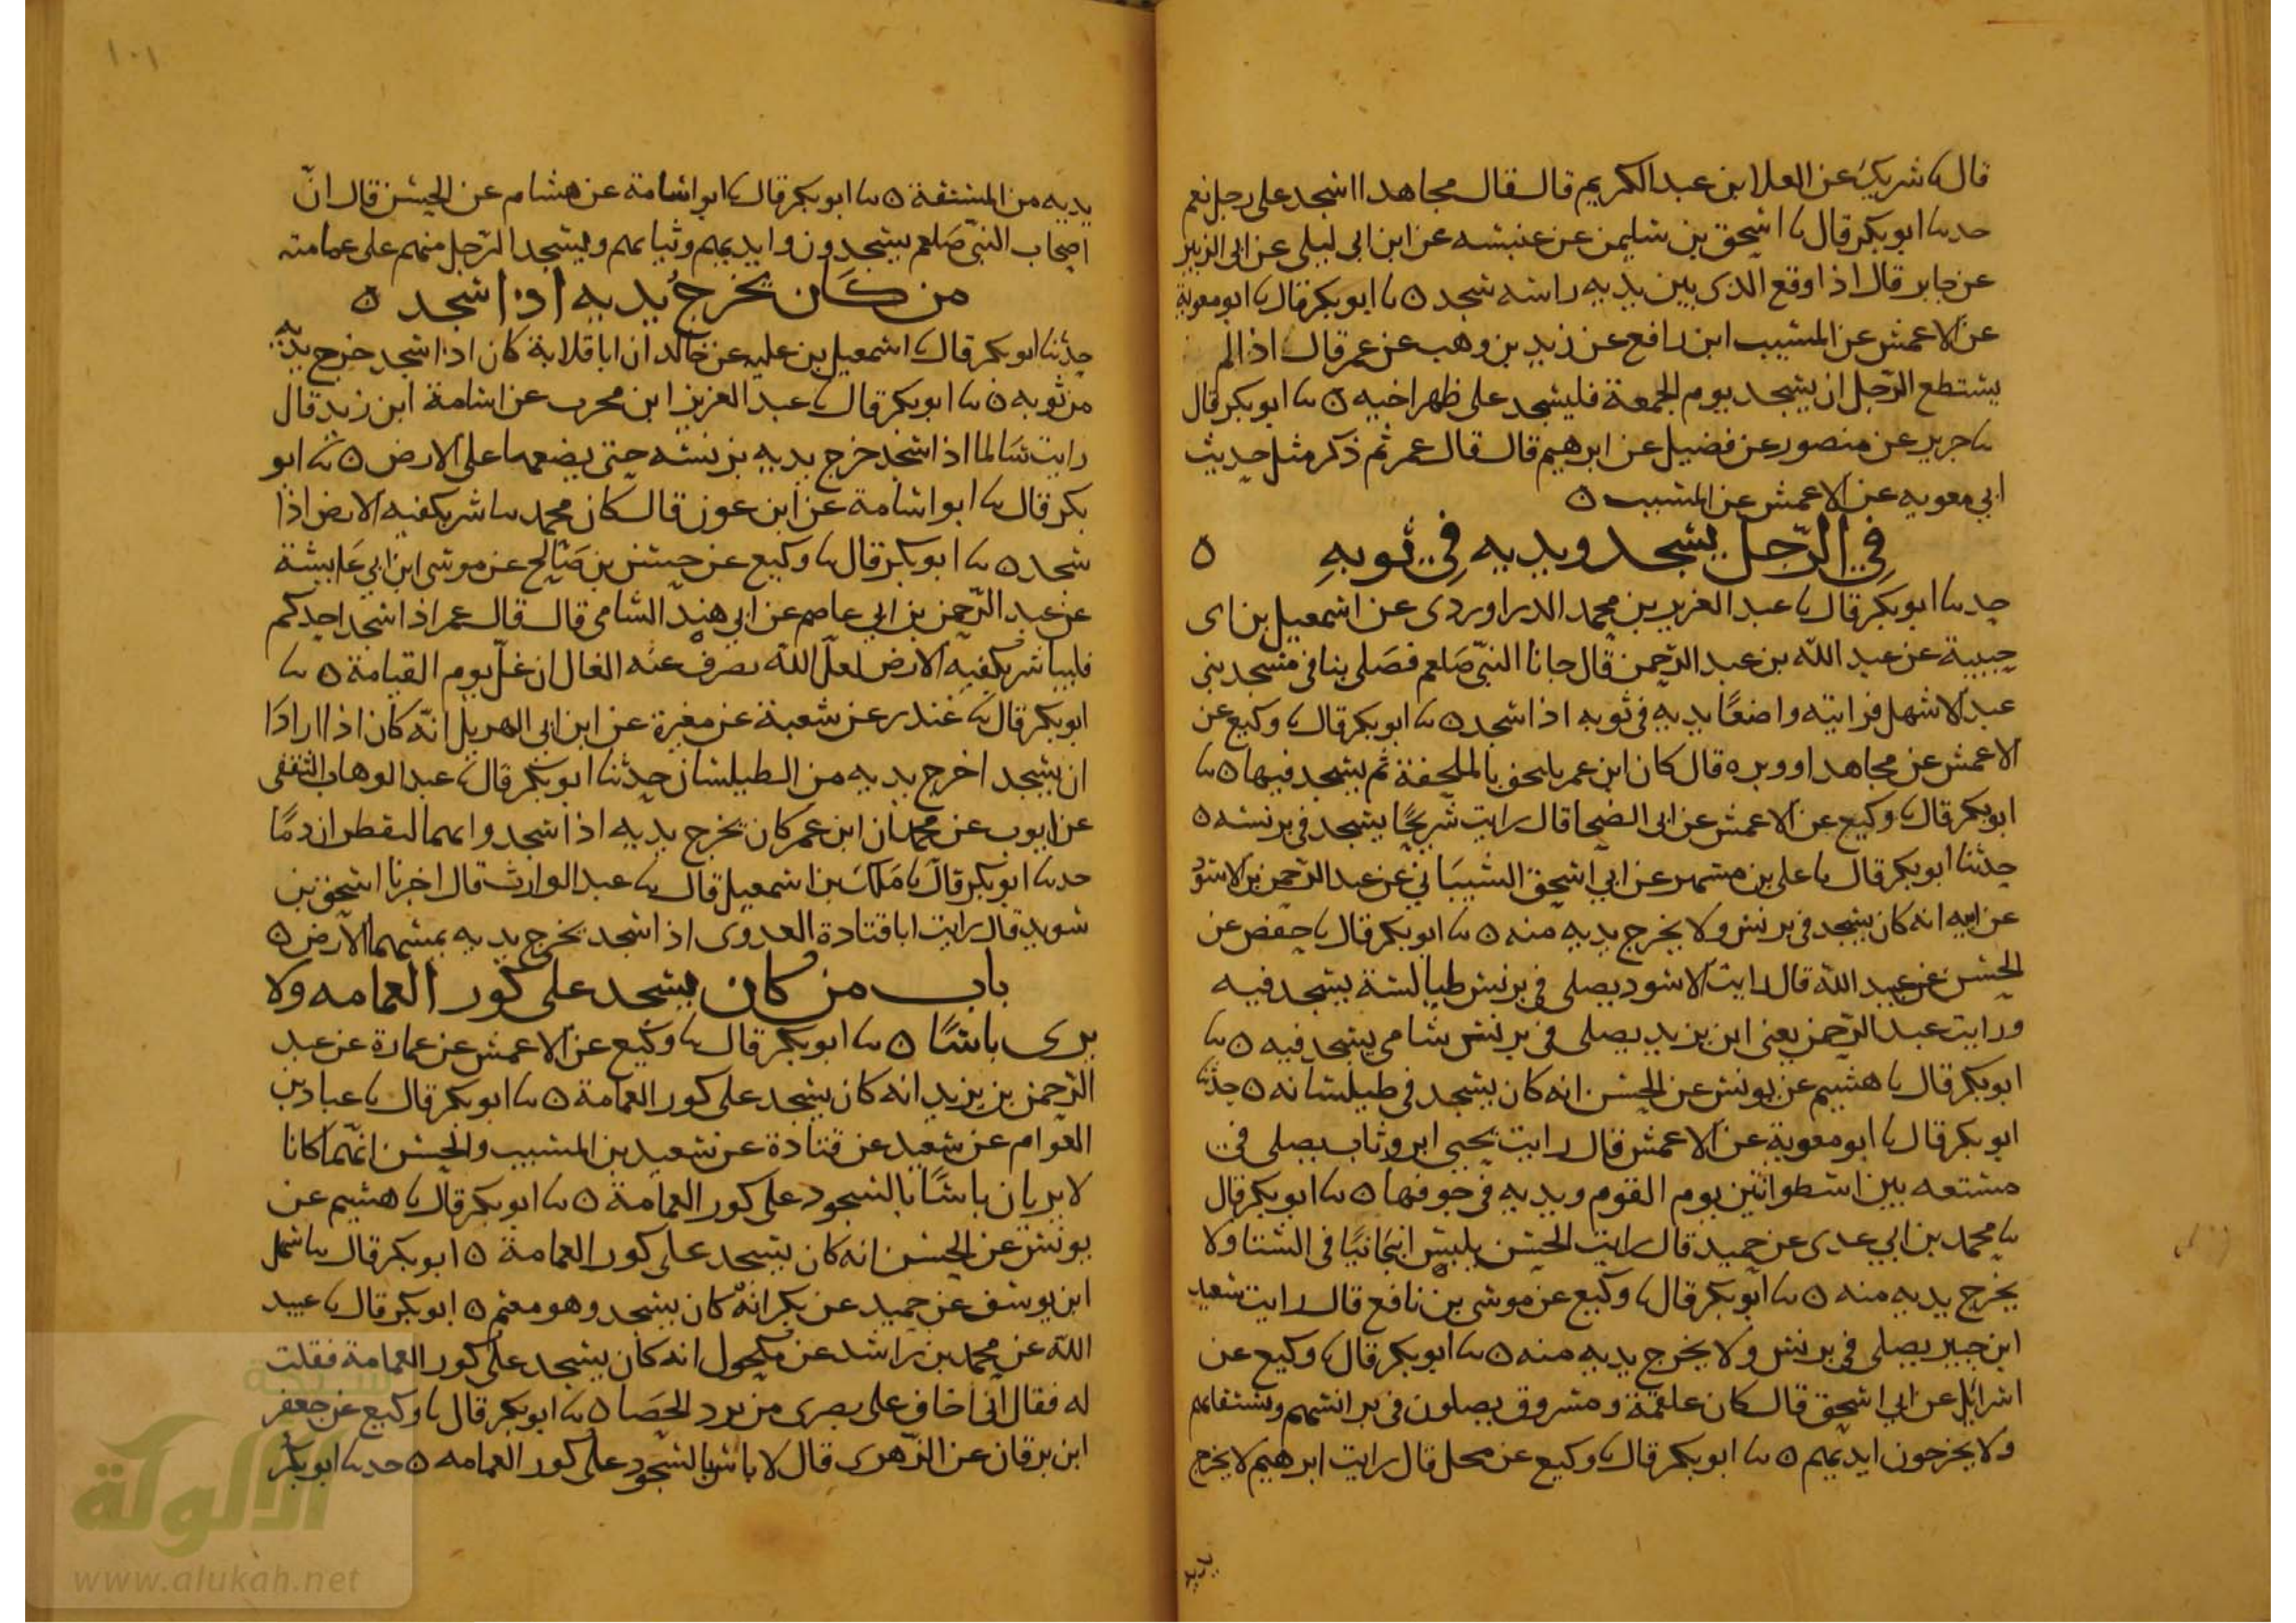 قال نا شريك عن العلا بن عبد الكريم قال قال مجاهد ااسجد على رجل نعم
حدثنا ابو بكر قال نا اسحق بن سليمن عن عنبسه عن ابن ابي ليلى عن ابي الزبير
عن جابر قال اذا وقع الذي بين يديه راسه سجد ٥ نا ابو بكر قال نا ابو معوية
عن الاعمش عن المسيب ابن رافع عن زيد بن وهب عن عمر قال اذا لم
يستطع الرجل ان يسجد يوم الجمعة فليسجد على ظهر اخيه ٥ نا ابو بكر قال
نا جرير عن منصور عن فضيل عن ابرهيم قال قال عمر ثم ذكر مثل حديث
ابي معويه عن الاعمش عن المسيب ٥
في الرّجل يسجد ويديه في ثوبهِ ٥
حدثنا ابو بكر قال نا عبد العزيز بن محمد الدراوردي عن اسمعيل بن ابي
حبيبة عن عبد الله بن عبد الرّحمن قال جانا النبيّ صلعم فصَلى بنا في مسجد بني
عبد الاشهل فرايته واضعًا يديه في ثوبه اذا سجد ٥ نا ابو بكر قال نا وكيع عن
الاعمش عن مجاهد او وبره قال كان ابن عمر يلتحف بالملحفة ثم يسجد فيها ٥ نا
ابو بكر قال نا وكيع عن الاعمش عن ابي الضحا قال رايت شريحًا يسجد في برنسه ٥
حدثنا ابو بكر قال نا على بن مسهر عن ابي اسحق الشيبَاني عن عبد الرّحمن بن الاسود
عن ابيه انه كان يسجد في برنس ولا يخرج يديه منه ٥ نا ابو بكر قال نا حفص عن
الحسن عن عبيد الله قال رايت الاسود يصلى في برنس طيالسة يسجد فيه
ورايت عبد الرّحمن يعنى ابن يزيد يصلى في برنس شامي يسجد فيه ٥ نا
ابو بكر قال نا هشيم عن يونس عن الحسن انه كان يسجد في طيلسانه ٥ حدثنا
ابو بكر قال نا ابو معوية عن الاعمش قال رايت يحيى ابن وثاب يصلى في
مستقه بين اسطوانتين يوم القوم ويديه في جوفها ٥ نا ابو بكر قال
نا محمد بن ابي عدى عن حميد قال رايت الحسن يلبس انبجانيًا في الشتا ولا
يخرج يديه منه ٥ نا ابو بكر قال نا وكيع عن موسى بن نافع قال رايت سعيد
ابن جبير يصلى في برنس ولا يخرج يديه منه ٥ نا ابو بكر قال نا وكيع عن
اسرائل عن ابي اسحق قال كان علقمة ومسروق يصلون في برانسهم ومستقاتهم
ولا يخرجون ايديهم ٥ نا ابو بكر قال نا وكيع عن محل قال رايت ابرهيم لا يخرج
يديه
١٠١
يديه من المستقة ٥ نا ابو بكر قال نا ابو اسامة عن هشام عن الحسن قال انّ
اصحاب النبيّ صَلعم يسجدون وايديهم وثيابهم ويسجد الرّجل منهم على عمامته
من كَان يخرج يديه اذا سجد ٥
حدثنا ابو بكر قال نا اسمعيل بن عليه عن خالد ان ابا قلابة كان اذا سجد خرج يديه
من ثوبه ٥ نا ابو بكر قال نا عبد العزيز ابن محرب عن اسامة ابن زيد قال
رايت سَالما اذا سجد خرج يديه من برنسه حتى يضعهما على الارض ٥ نا ابو
بكر قال نا ابو اسامة عن ابن عون قال كان محمد يباشر بكفيه الارض اذا
سجد ٥ نا ابو بكر قال نا وكيع عن حسن بن صَالح عن موسى ابن ابي عَايشة
عن عبد الرّحمن بن ابي عاصم عن ابي هند الشامى قال قال عمر اذا سجد احدكم
فليباشر بكفيه الارض لعلّ الله يصرف عنه الغال ان غلّ يوم القيامة ٥ نا
ابو بكر قال نا غندر عن شعبة عن مغيرة عن ابن ابي الهذيل انّه كان اذا اراد
ان يسجد اخرج يديه من الطيلسان حدثنا ابو بكر قال نا عبد الوهاب الثقفى
عن ايوب عن محمد ان ابن عمر كان يخرج يديه اذا سجد وانهما ليقطران دمًا
حدثنا ابو بكر قال نا مَلك بن اسمعيل قال نا عبد الوارث قال اخبرنا اسحق بن
سويد قال رايت ابا قتادة العدوى اذا سجد يخرج يديه يمسهما الارض ٥
باب من كان يسجد على كور العمامه ولا
يرى باسًا ٥ نا ابو بكر قال نا وكيع عن الاعمش عن عمارة عن عبد
الرّحمن بن يزيد انه كان يسجد على كور العمامة ٥ نا ابو بكر قال نا عباد بن
العوام عن سعيد عن قتادة عن سعيد بن المسيب والحسن انهّما كانا
لا يريان باسًا بالسجود على كور العمامة ٥ نا ابو بكر قال نا هشيم عن
يونس عن الحسن انه كان يسجد على كور العمامة ٥ ابو بكر قال نا سهل
ابن يوسف عن حميد عن بكر انه كان يسجد وهو معتم ٥ ابو بكر قال نا عبيد
الله عن محمد بن راشد عن مكحول انه كان يسجد على كور العمامة فقلت
له فقال انى اخاف على بصرى من برد الحَصا ٥ نا ابو بكر قال نا وكيع عن جعفر
ابن برقان عن الزّهرى قال لا باس بالسجود على كور العمامه ٥ حدثنا ابو بكر
شبكة
الألوكة
www.alukah.net